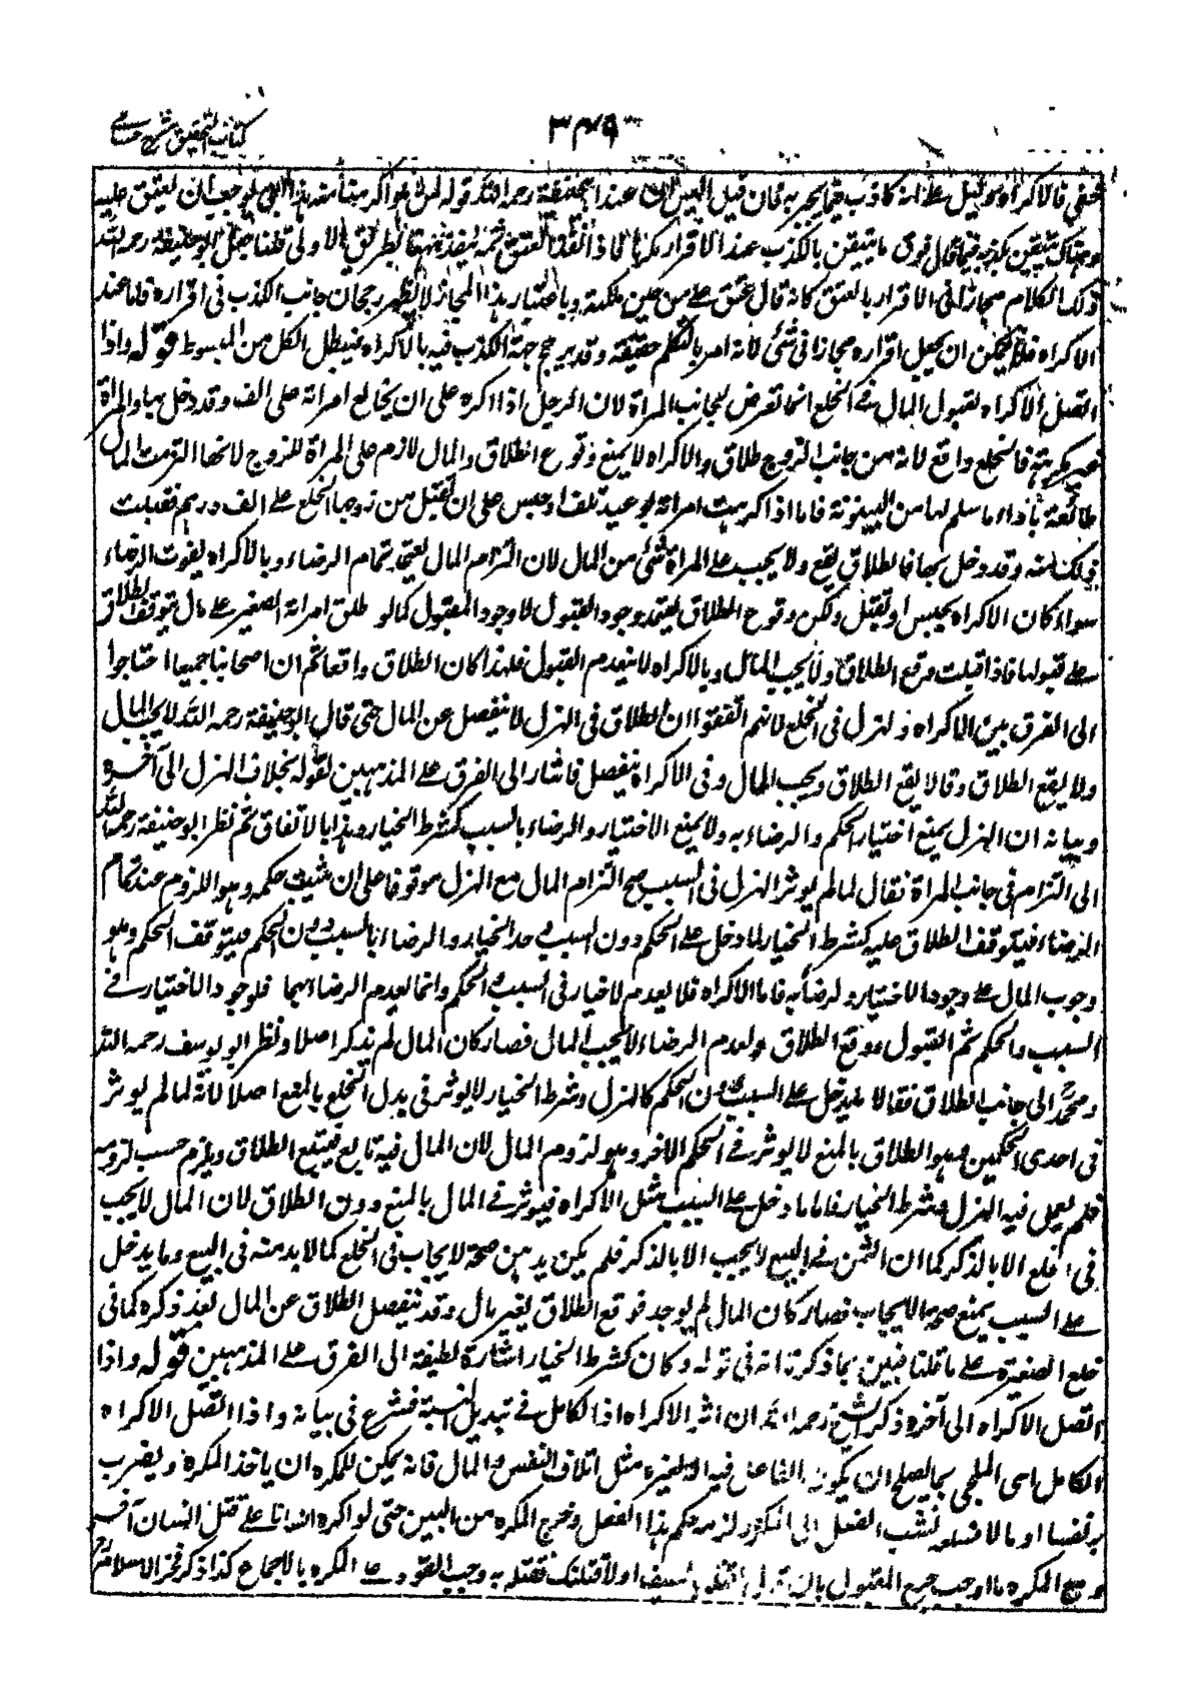 كتاب التحقيق شرح حسامي
٣٤٩
فالاكراه دليل على انه كاذب فيما يخبر به فان قيل اليس ان عند ابي حنيفة رحمه الله قوله لمن هو اكبر سنا منه هذا ابني يوجب ان يعتق عليه
وهناك يتيقن بكذبه فيما قال فوق ما يتيقن بالكذب عند الاقرار مكرها فاذا نفذ العتق ثمه ينفذ ههنا بطريق الاولى قلنا جعل ابو حنيفة رحمه الله
ذلك الكلام مجازا في الاقرار بالعتق كانه قال عتق علي من حين ملكته وباعتبار هذا المجاز لا يظهر رجحان جانب الكذب في اقراره فاما عند
الاكراه فلا يمكن ان يجعل اقراره مجازا في شئ لانه امر بالتكلم حقيقة وقد يرجح جهة الكذب فيه بالاكراه فيبطل الكل من المبسوط قوله واذا
اتصل الاكراه بقبول المال في الخلع انما تعرض لجانب المرأة لان الرجل اذا اكره على ان يخالع امرأته على الف وقد دخل بها والمرأة
غير مكرهة فالخلع واقع لانه من جانب الزوج طلاق والاكراه لا يمنع وقوع الطلاق والمال لازم على المرأة للزوج لانها التزمت المال
طائعة بازاء ما سلم لها من البينونة فاما اذا اكرهت امرأته بوعيد تلف او حبس على ان تقبل من زوجها الخلع على الف درهم فقبلت
ذلك منه وقد دخل بها فالطلاق يقع ولا يجب على المرأة شئ من المال لان التزام المال يعتمد تمام الرضاء وبالاكراه يفوت الرضاء
سواء كان الاكراه بحبس او بقتل ولكن وقوع الطلاق يعتمد وجود القبول لا وجود المقبول كما لو طلق امرأته الصغيرة على مال يتوقف الطلاق
على قبولها فاذا قبلت وقع الطلاق ولا يجب المال وبالاكراه لا ينعدم القبول فلهذا كان الطلاق واقعا ثم ان اصحابنا جميعا احتاجوا
الى الفرق بين الاكراه والهزل في الخلع لانهم اتفقوا ان الطلاق في الهزل لا ينفصل عن المال حتى قال ابو حنيفة رحمه الله لا يجب المال
ولا يقع الطلاق وقالا يقع الطلاق ويجب المال وفي الاكراه ينفصل فاشار الى الفرق على المذهبين لقوله بخلاف الهزل الى آخره
وبيانه ان الهزل يمنع اختيار الحكم والرضاء به ولا يمنع الاختيار والرضاء بالسبب كشرط الخيار وهذا بالاتفاق ثم نظر ابو حنيفة رحمه الله
الى التزام في جانب المرأة فقال لما لم يوثر الهزل في السبب صح التزام المال مع الهزل موقوفا على ان يثبت حكمه وهو اللزوم عند تمام
الرضاء فيتوقف الطلاق عليه كشرط الخيار لما دخل على الحكم دون السبب وجد الخيار والرضاء بالسبب دون الحكم فيتوقف الحكم وهو
وجوب المال على وجود الاختيار والرضاء به فاما الاكراه فلا يعدم الاختيار في السبب والحكم وانما يعدم الرضا بهما فلوجود الاختيار في
السبب والحكم تم القبول ووقع الطلاق ولعدم الرضاء لا يجب المال فصار كان المال لم يذكر اصلا ونظر ابو يوسف رحمه الله
ومحمد الى جانب الطلاق فقالا ما دخل على السبب دون الحكم كالهزل وشرط الخيار لا يوثر في بدل الخلع بالمنع اصلا لانه لما لم يوثر
في احدى الحكمين وهو الطلاق بالمنع لا يوثر في الحكم الآخر وهو لزوم المال لان المال فيه تابع فيتبع الطلاق ويلزم حسب لزومه
فلم يعمل فيه الهزل وشرط الخيار فاما ما دخل على السبب مثل الاكراه فيوثر في المال بالمنع دون الطلاق لان المال لا يجب
في الخلع الا بالذكر كما ان الثمن في البيع لا يجب الا بالذكر فلم يكن بد من صحة الايجاب في الخلع كما لا بد منه في البيع وما يدخل
على السبب يمنع صحة الايجاب فصار كان المال لم يوجد فوقع الطلاق بغير مال وقد ينفصل الطلاق عن المال بعد ذكره كما في
خلع الصغيرة على ما قلنا فبين بما ذكرنا انه في قوله وكان كشرط الخيار اشارة لطيفة الى الفرق على المذهبين قوله واذا
اتصل الاكراه الى آخره ذكر الشيخ رحمه الله ان اثر الاكراه اذا تكامل في تبديل النسبة فشرع في بيانه واذا اتصل الاكراه
الكامل اى الملجى بما يصلح ان يكون الفاعل فيه آلة لغيره مثل اتلاف النفس والمال فانه يمكن للمكره ان ياخذ المكره ويضرب
به نفسا او مالا فيتلفه نسب الفعل الى المكره ولزمه حكم هذا الفعل وخرج المكره من البين حتى لو اكره انسانا على قتل انسان آخر
المكره ما اوجب جرح المقتول بان قال اقتله بسيف او لاقتلنك فقتله به وجب القود على المكره بالاجماع كذا ذكر فخر الاسلام